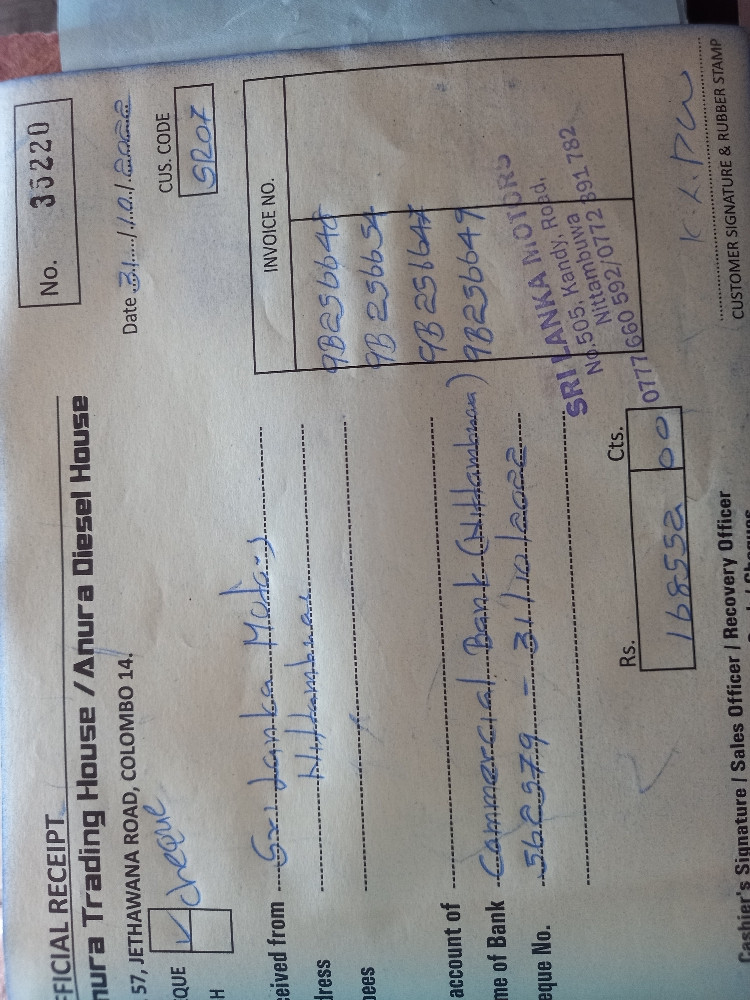 FFICIAL RECEIPT
No. 35220
nura Trading House / Anura Diesel House
57, JETHAWANA ROAD, COLOMBO 14.
Date 31/10/2022
QUE ✓ cheque
H
CUS. CODE
SR07
ceived from Sri Lanka Motors
dress Nittambuwa
pees
account of
me of Bank Commercial Bank (Nittambuwa)
eque No. 562579 - 31/10/2022
INVOICE NO.
9B256648
9B256654
9B256647
9B256649
SRI LANKA MOTORS
No:505, Kandy, Road,
Nittambuwa
0777 660 592/0772 891 782
Rs. Cts.
168552 00
CUSTOMER SIGNATURE & RUBBER STAMP
Cashier's Signature / Sales Officer / Recovery Officer